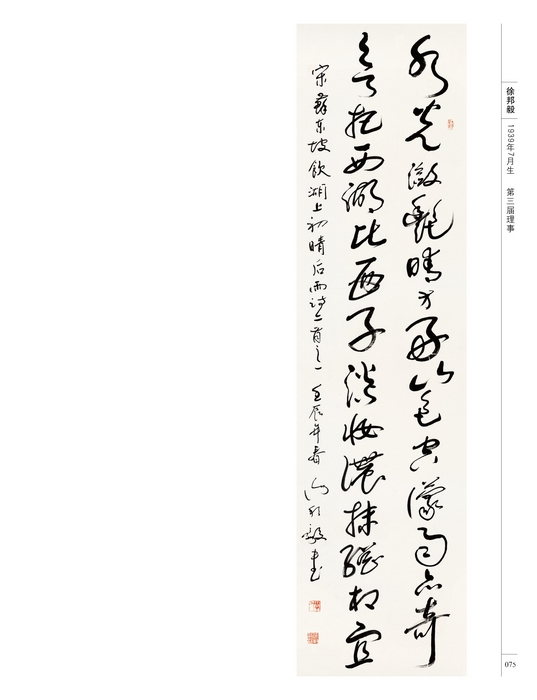 徐邦毅 1939年7月生 第三届理事
水光瀲灔晴方好山色空濛雨亦奇
欲把西湖比西子淡妝濃抹總相宜
宋蘇东坡飲湖上初晴后雨诗二首之一 壬辰年春 徐邦毅书
075